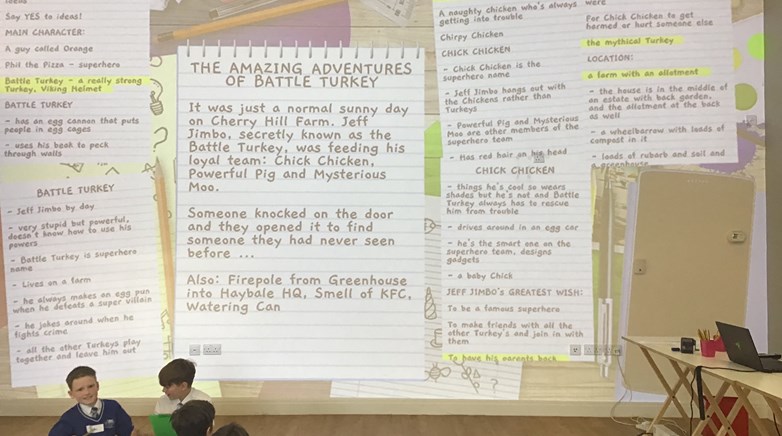 Say YES to ideas!
MAIN CHARACTER:
A guy called Orange
Phil the Pizza - superhero
Battle Turkey - a really strong
Turkey, Viking Helmet
BATTLE TURKEY
- has an egg cannon that puts
people in egg cages
- uses his beak to peck
through walls
BATTLE TURKEY
- Jeff Jimbo by day
- very stupid but powerful,
doesn't know how to use his
powers
- Battle Turkey is superhero
name
- Lives on a farm
- he always makes an egg pun
when he defeats a super villain
- he jokes around when he
fights crime
- all the other Turkeys play
together and leave him out
THE AMAZING ADVENTURES
OF BATTLE TURKEY
It was just a normal sunny day
on Cherry Hill Farm. Jeff
Jimbo, secretly known as the
Battle Turkey, was feeding his
loyal team: Chick Chicken,
Powerful Pig and Mysterious
Moo.
Someone knocked on the door
and they opened it to find
someone they had never seen
before ...
Also: Firepole from Greenhouse
into Haybale HQ, Smell of KFC,
Watering Can
A naughty chicken who's always
getting into trouble
Chirpy Chicken
CHICK CHICKEN
- Chick Chicken is the
superhero name
- Jeff Jimbo hangs out with
the Chickens rather than
Turkeys
- Powerful Pig and Mysterious
Moo are other members of the
superhero team
- Has red hair on his head
CHICK CHICKEN
- things he's cool so wears
shades but he's not and Battle
Turkey always has to rescue
him from trouble
- drives around in an egg car
- he's the smart one on the
superhero team, designs
gadgets
- a baby Chick
JEFF JIMBO'S GREATEST WISH:
To be a famous superhero
To make friends with all the
other Turkey's and join in with
them
To have his parents back
were
For Chick Chicken to get
harmed or hurt someone else
the mythical Turkey
LOCATION:
a farm with an allotment
- the house is in the middle of
an estate with back garden,
and the allotment at the back
as well
- a wheelbarrow with loads of
compost in it
- loads of rubarb and soil and
greenhouse